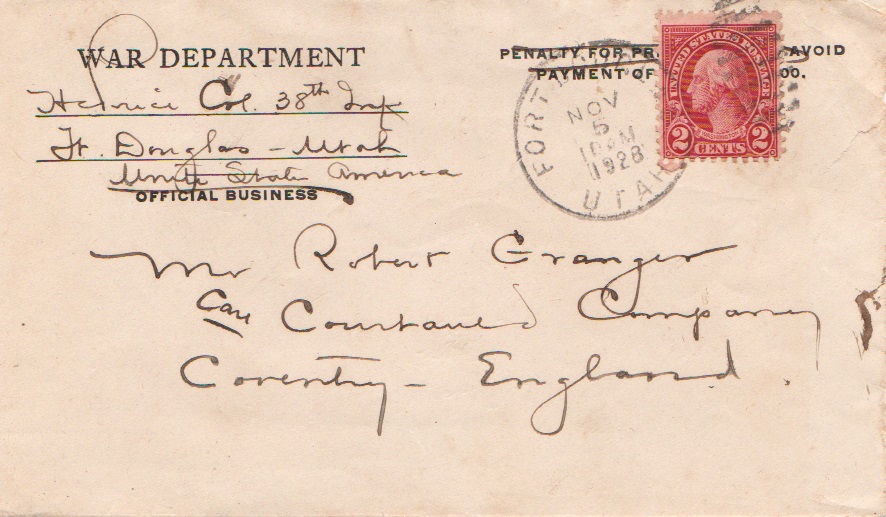 WAR DEPARTMENT
Col. 38th Inf
Ft. Douglas - Utah
United States America
OFFICIAL BUSINESS
PENALTY FOR PR AVOID
PAYMENT OF 00.
FORT
NOV
5
1928
UTAH
UNITED STATES POSTAGE
2 CENTS 2
Mr Robert Granger
Care Courtauld Company
Coventry - England.